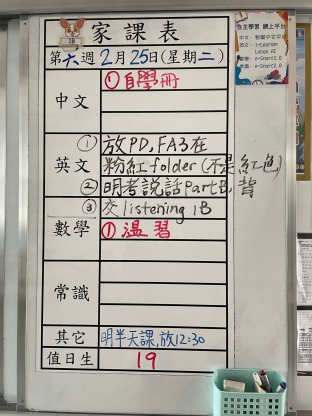 家課表
1B
第六週2月25日(星期二)
中文 ①自學冊
英文 ①放PD, FA3在
粉紅folder(不是紅色)
②明考說話Part B, 背
③交listening 1B
數學 ①溫習
常識
其它 明半天課,放12:30
值日生 19
自主學習 網上平台